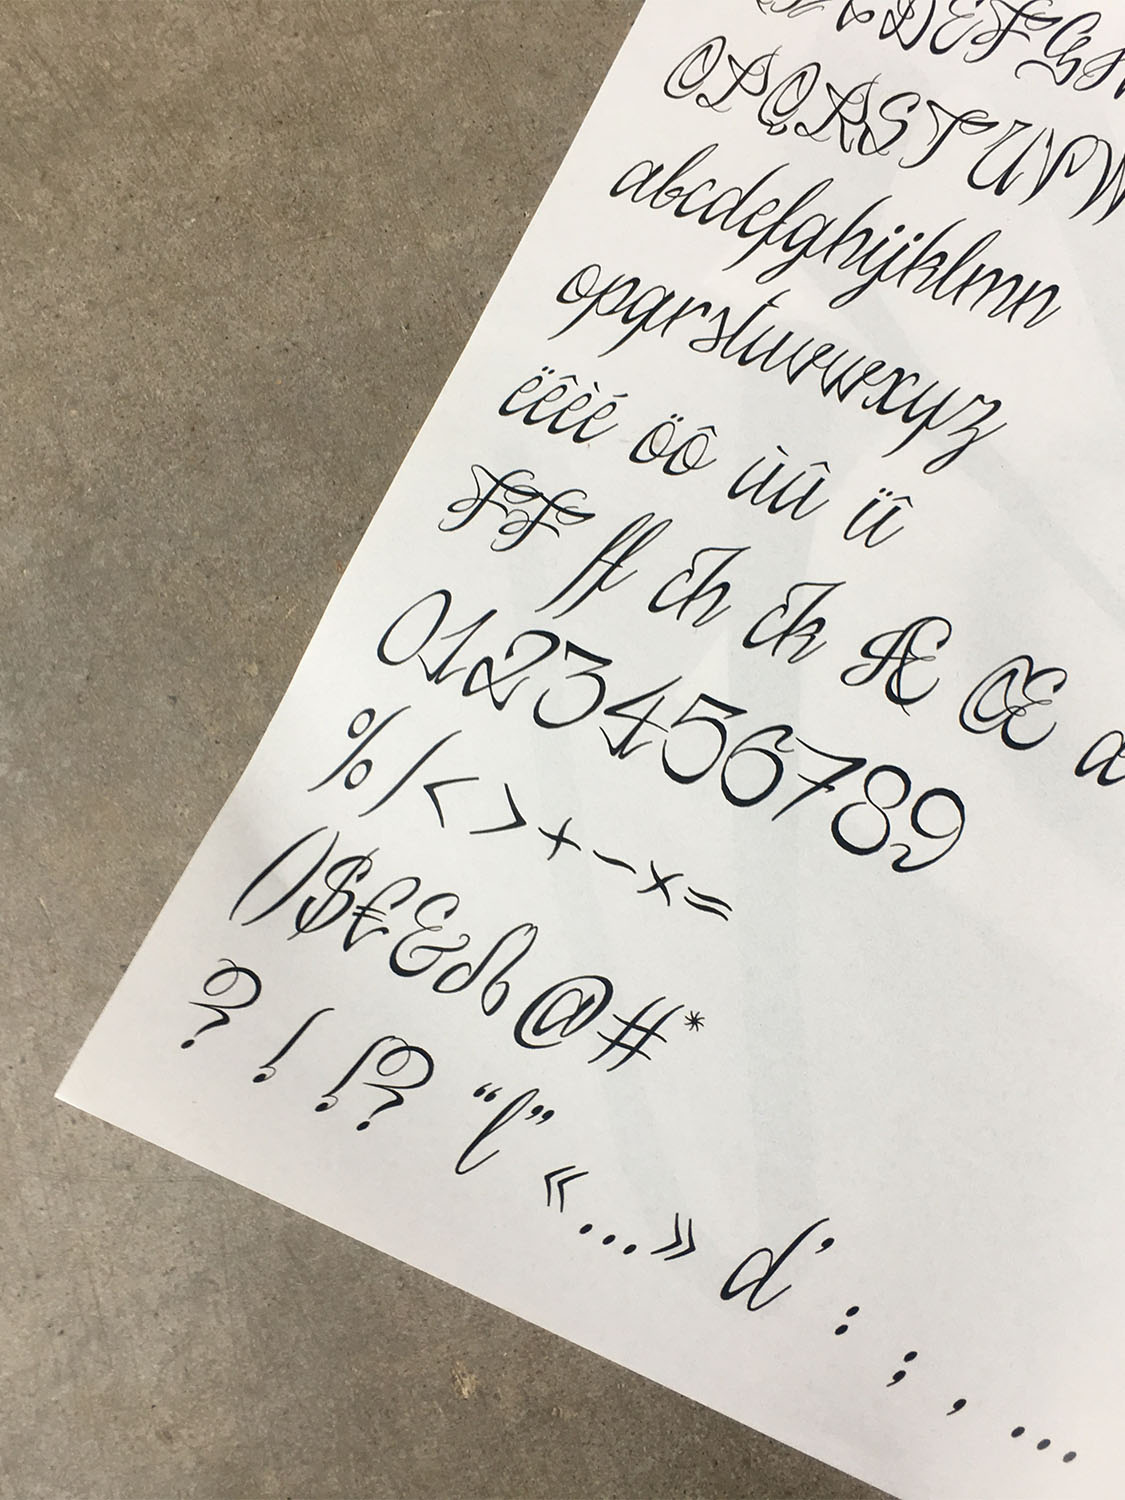 DEFG
OPQRSTUVW
abcdefghijklmn
opqrstuvwxyz
ëêèé öô ùû ïî
FF ff ch ck Æ Œ æ
0123456789
%/<>+-×=
()$€&@#*
? ! !? “l”
«...» d’ : ; , ...